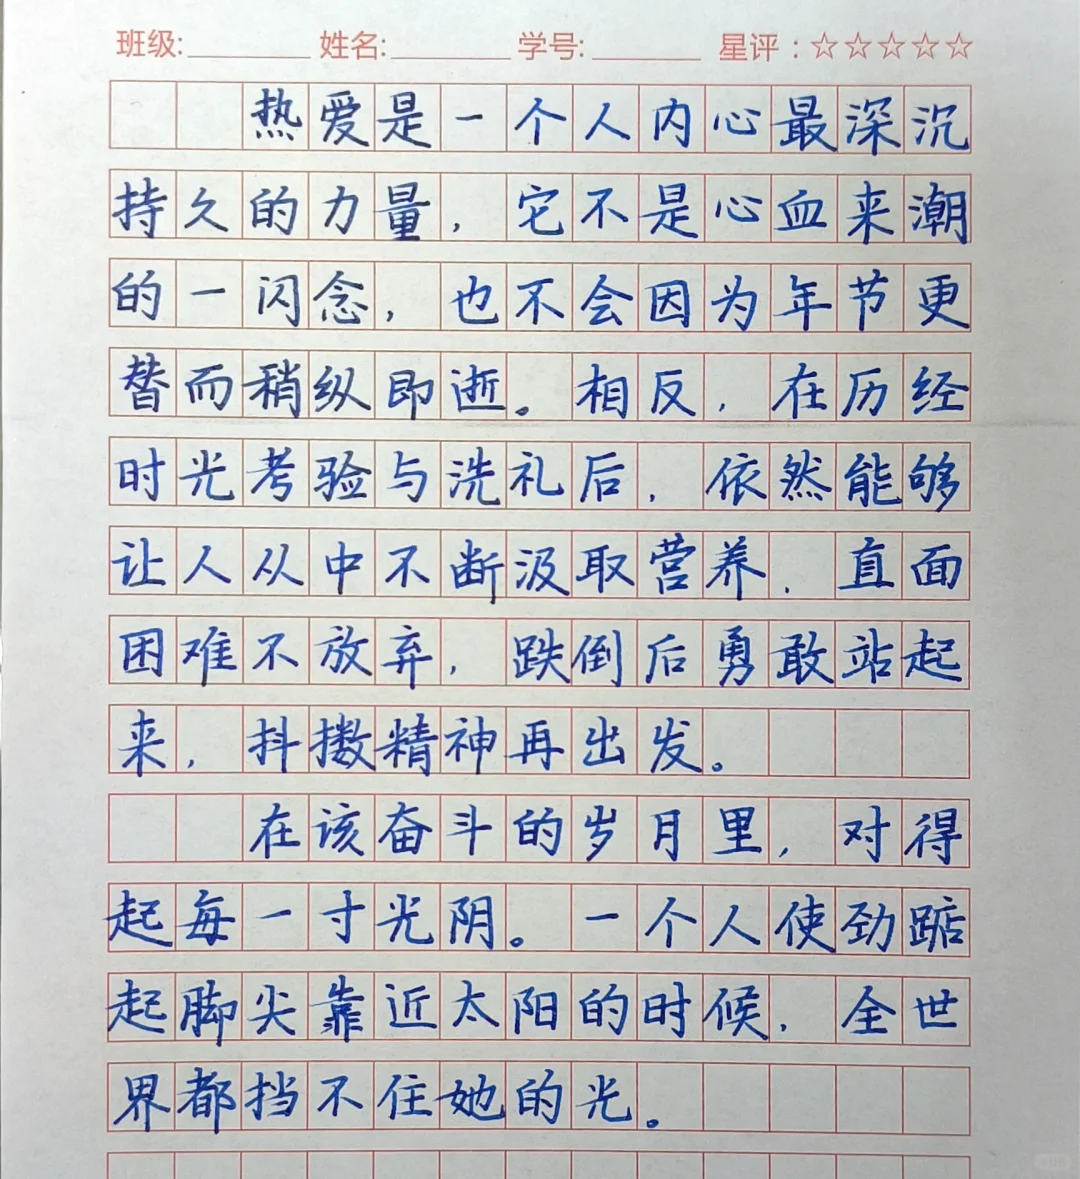 班级:________ 姓名:________ 学号:________ 星评:☆☆☆☆☆
热爱是一个人内心最深沉
持久的力量,它不是心血来潮
的一闪念,也不会因为年节更
替而稍纵即逝。相反,在历经
时光考验与洗礼后,依然能够
让人从中不断汲取营养,直面
困难不放弃,跌倒后勇敢站起
来,抖擞精神再出发。
在该奋斗的岁月里,对得
起每一寸光阴。一个人使劲踮
起脚尖靠近太阳的时候,全世
界都挡不住她的光。